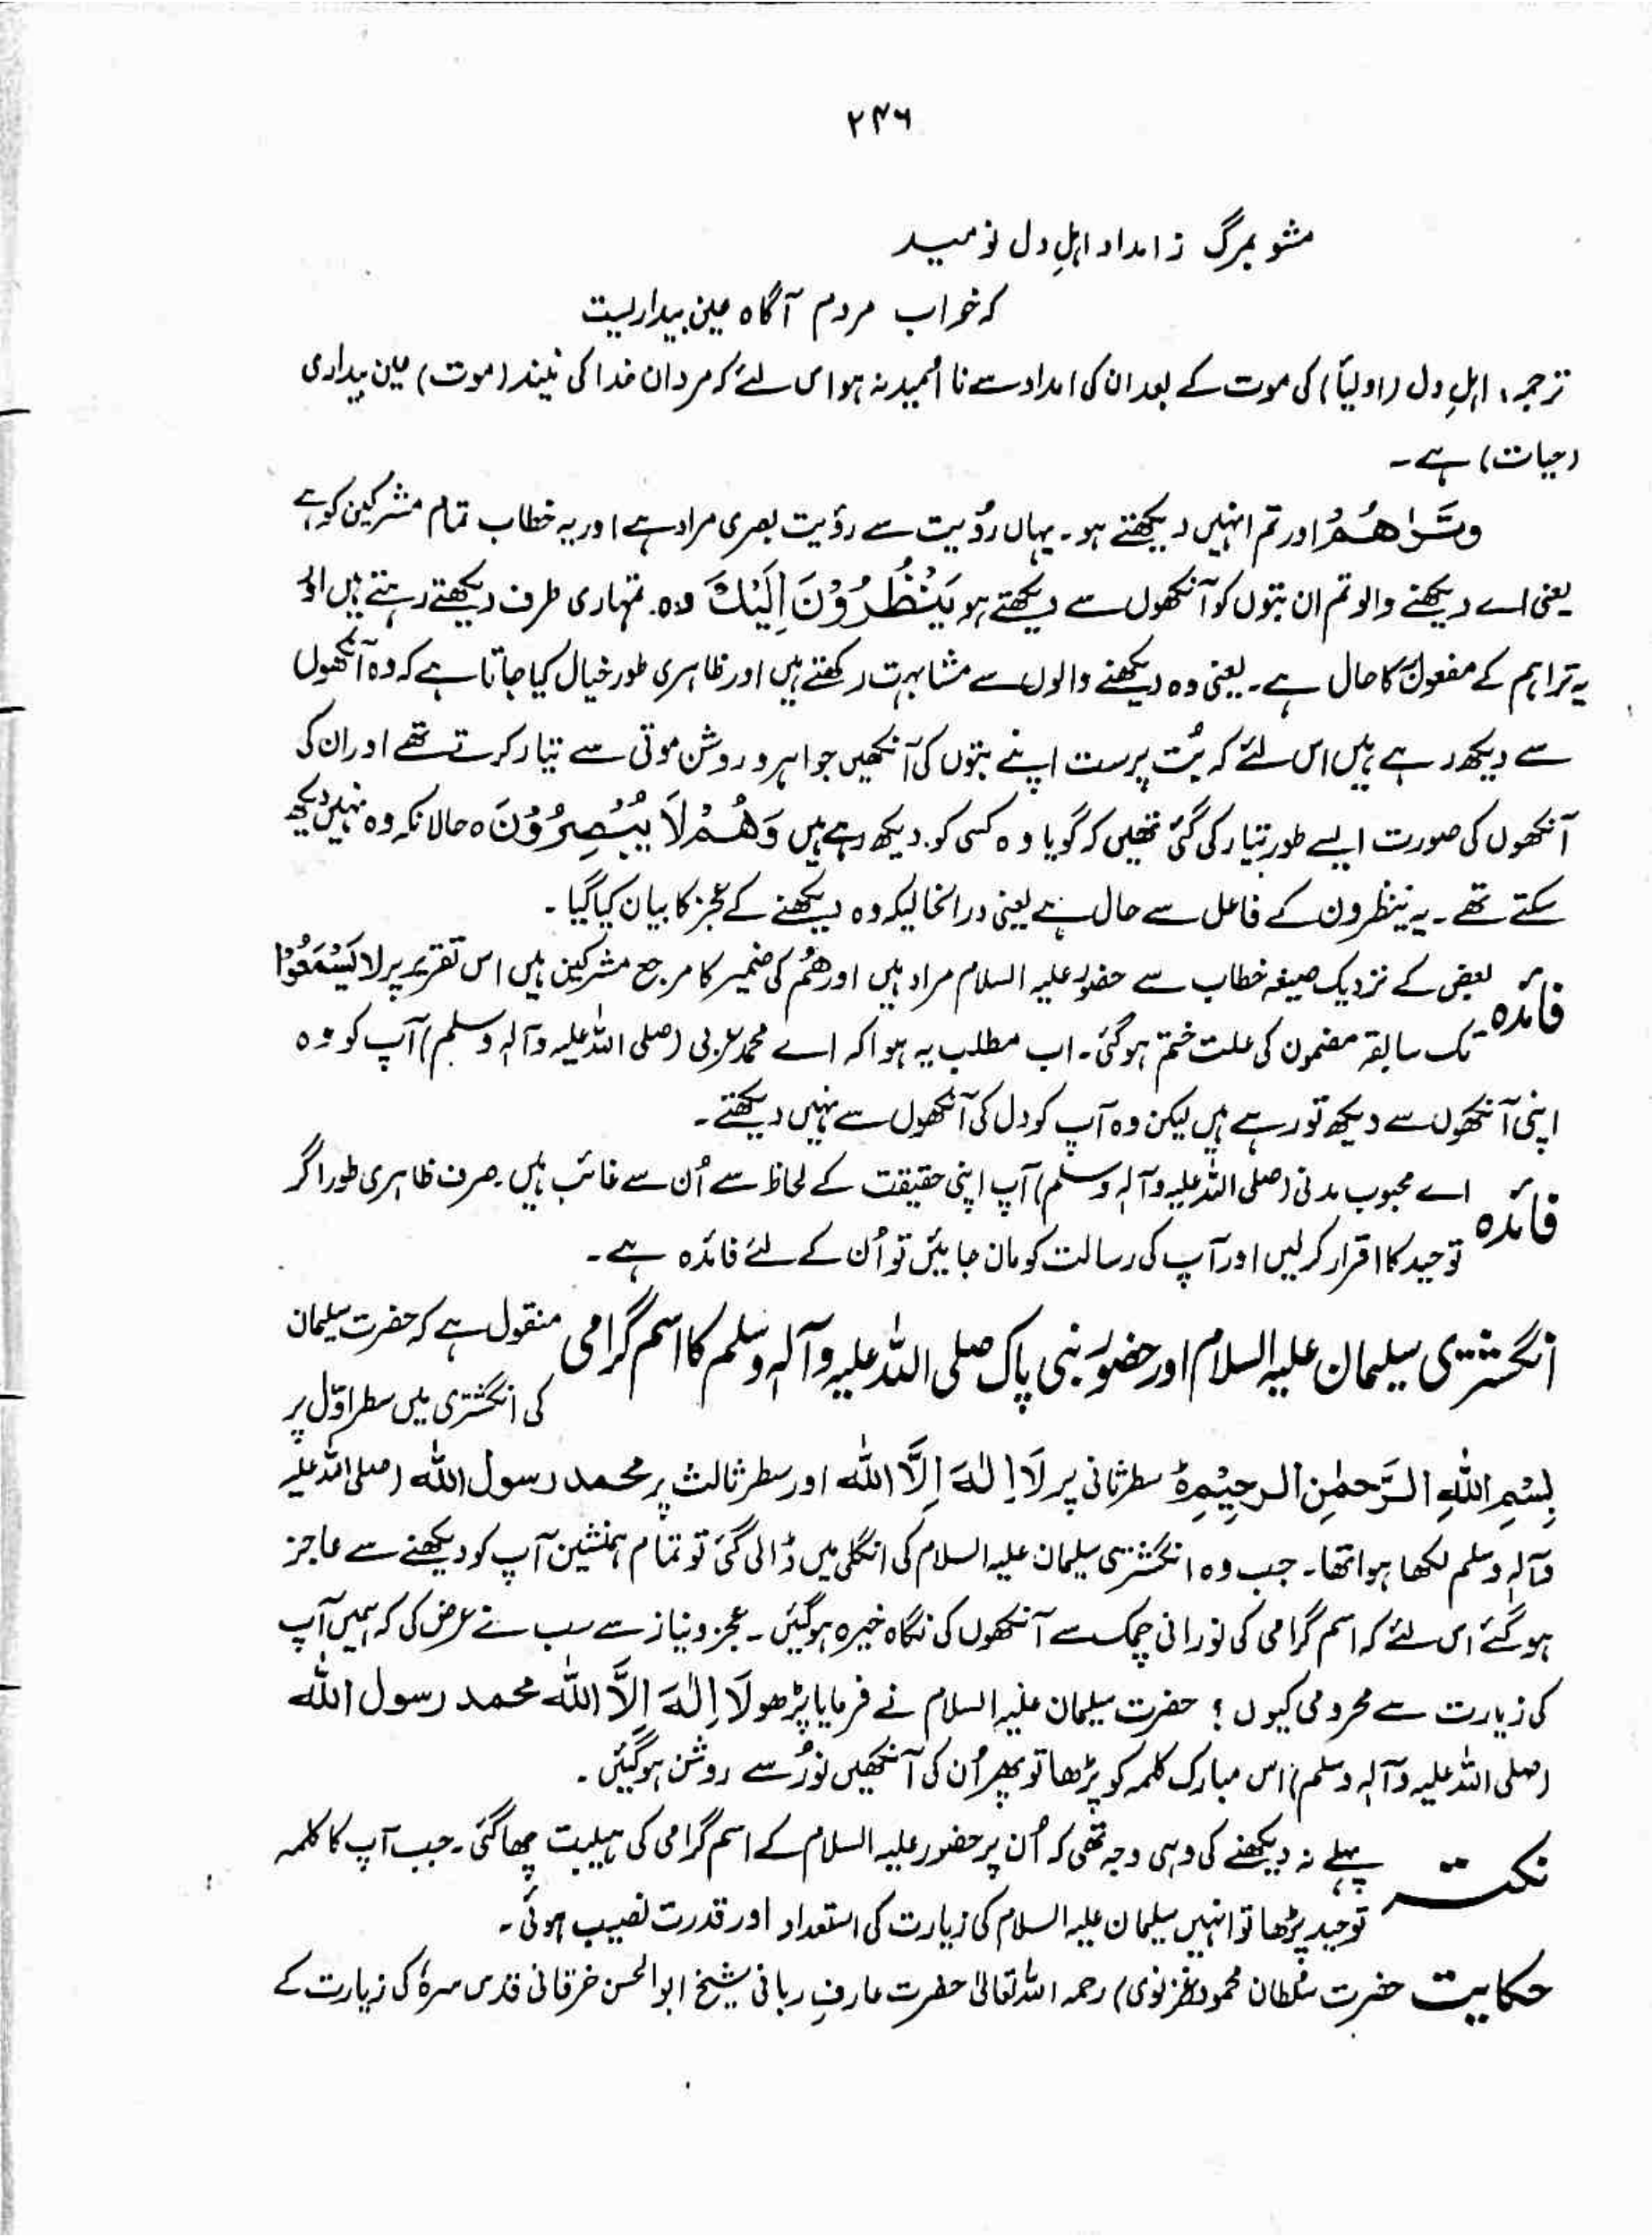 ۲۴۶
مشو بمرگ ز امداد اہلِ دل نومید
کہ خواب مردم آگاہ عین بیداریست
ترجمہ: اہلِ دل (اولیأ) کی موت کے بعد ان کی امداد سے نا اُمید نہ ہو اس لئے کہ مردان خدا کی نیند (موت) عین بیداری
(حیات) ہے۔
وَتَرٰاهُمْ اور تم انہیں دیکھتے ہو۔ یہاں رؤیت سے رؤیت بصری مراد ہے اور یہ خطاب تمام مشرکین کو ہے
یعنی اے دیکھنے والو تم ان بتوں کو آنکھوں سے دیکھتے ہو یَنْظُرُوْنَ اِلَیْكَ وہ تمہاری طرف دیکھتے رہتے ہیں اور
یہ تراہم کے مفعول کا حال ہے۔ یعنی وہ دیکھنے والوں سے مشابہت رکھتے ہیں اور ظاہری طور خیال کیا جاتا ہے کہ وہ آنکھوں
سے دیکھ رہے ہیں اس لئے کہ بُت پرست اپنے بتوں کی آنکھیں جواہر و روشن موتی سے تیار کرتے تھے اور ان کی
آنکھوں کی صورت ایسے طور تیار کی گئی تھیں کہ گویا وہ کسی کو دیکھ رہے ہیں وَهُمْ لَا یُبْصِرُوْنَ ہ حالانکہ وہ نہیں دیکھ
سکتے تھے۔ یہ ینظرون کے فاعل سے حال ہے یعنی درانحالیکہ وہ دیکھنے کے عجز کا بیان کیا گیا۔
فائدہ بعض کے نزدیک صیغہ خطاب سے حضور علیہ السلام مراد ہیں اور ھُم کی ضمیر کا مرجع مشرکین ہیں اس تقریر پر لا یَسْمَعُوْا
تک سابقہ مضمون کی علت ختم ہوگئی۔ اب مطلب یہ ہوا کہ اے محمد عربی (صلی اللہ علیہ وآلہٖ وسلم) آپ کو وہ
اپنی آنکھوں سے دیکھ تو رہے ہیں لیکن وہ آپ کو دل کی آنکھوں سے نہیں دیکھتے۔
فائدہ اے محبوب مدنی (صلی اللہ علیہ وآلہٖ وسلم) آپ اپنی حقیقت کے لحاظ سے اُن سے غائب ہیں۔ صرف ظاہری طور اگر
توحید کا اقرار کرلیں اور آپ کی رسالت کو مان جائیں تو اُن کے لئے فائدہ ہے۔
انگشتری سلیمان علیہ السلام اور حضور نبی پاک صلی اللہ علیہ وآلہٖ وسلم کا اسم گرامی منقول ہے کہ حضرت سلیمان
کی انگشتری میں سطر اوّل پر
بِسْمِ اللهِ الرَّحمٰنِ الرحِیْمِہ سطر ثانی پر لَا اِلٰهَ اِلَّا اللّٰه اور سطر ثالث پر محمد رسول اللّٰه (صلی اللہ علیہ
وآلہٖ وسلم لکھا ہوا تھا۔ جب وہ انگشتری سلیمان علیہ السلام کی انگلی میں ڈالی گئی تو تمام ہمنشین آپ کو دیکھنے سے عاجز
ہوگئے اس لئے کہ اسم گرامی کی نورانی چمک سے آنکھوں کی نگاہ خیرہ ہوگئیں۔ عجز و نیاز سے سب نے عرض کی کہ ہمیں آپ
کی زیارت سے محرومی کیوں؟ حضرت سلیمان علیہ السلام نے فرمایا پڑھو لَا اِلٰهَ اِلَّا اللّٰه محمد رسول اللّٰه
(صلی اللہ علیہ وآلہٖ وسلم) اس مبارک کلمہ کو پڑھا تو پھر اُن کی آنکھیں نُور سے روشن ہوگئیں۔
نکتہ پہلے نہ دیکھنے کی وہی وجہ تھی کہ اُن پر حضور علیہ السلام کے اسم گرامی کی ہیبت چھا گئی۔ جب آپ کا کلمہ
توحید پڑھا تو انہیں سلیمان علیہ السلام کی زیارت کی استعداد اور قدرت نصیب ہوئی۔
حکایت حضرت سُلطان محمود (غزنوی) رحمہ اللہ تعالیٰ حضرت عارفِ ربانی شیخ ابوالحسن خرقانی قدس سرہٗ کی زیارت کے